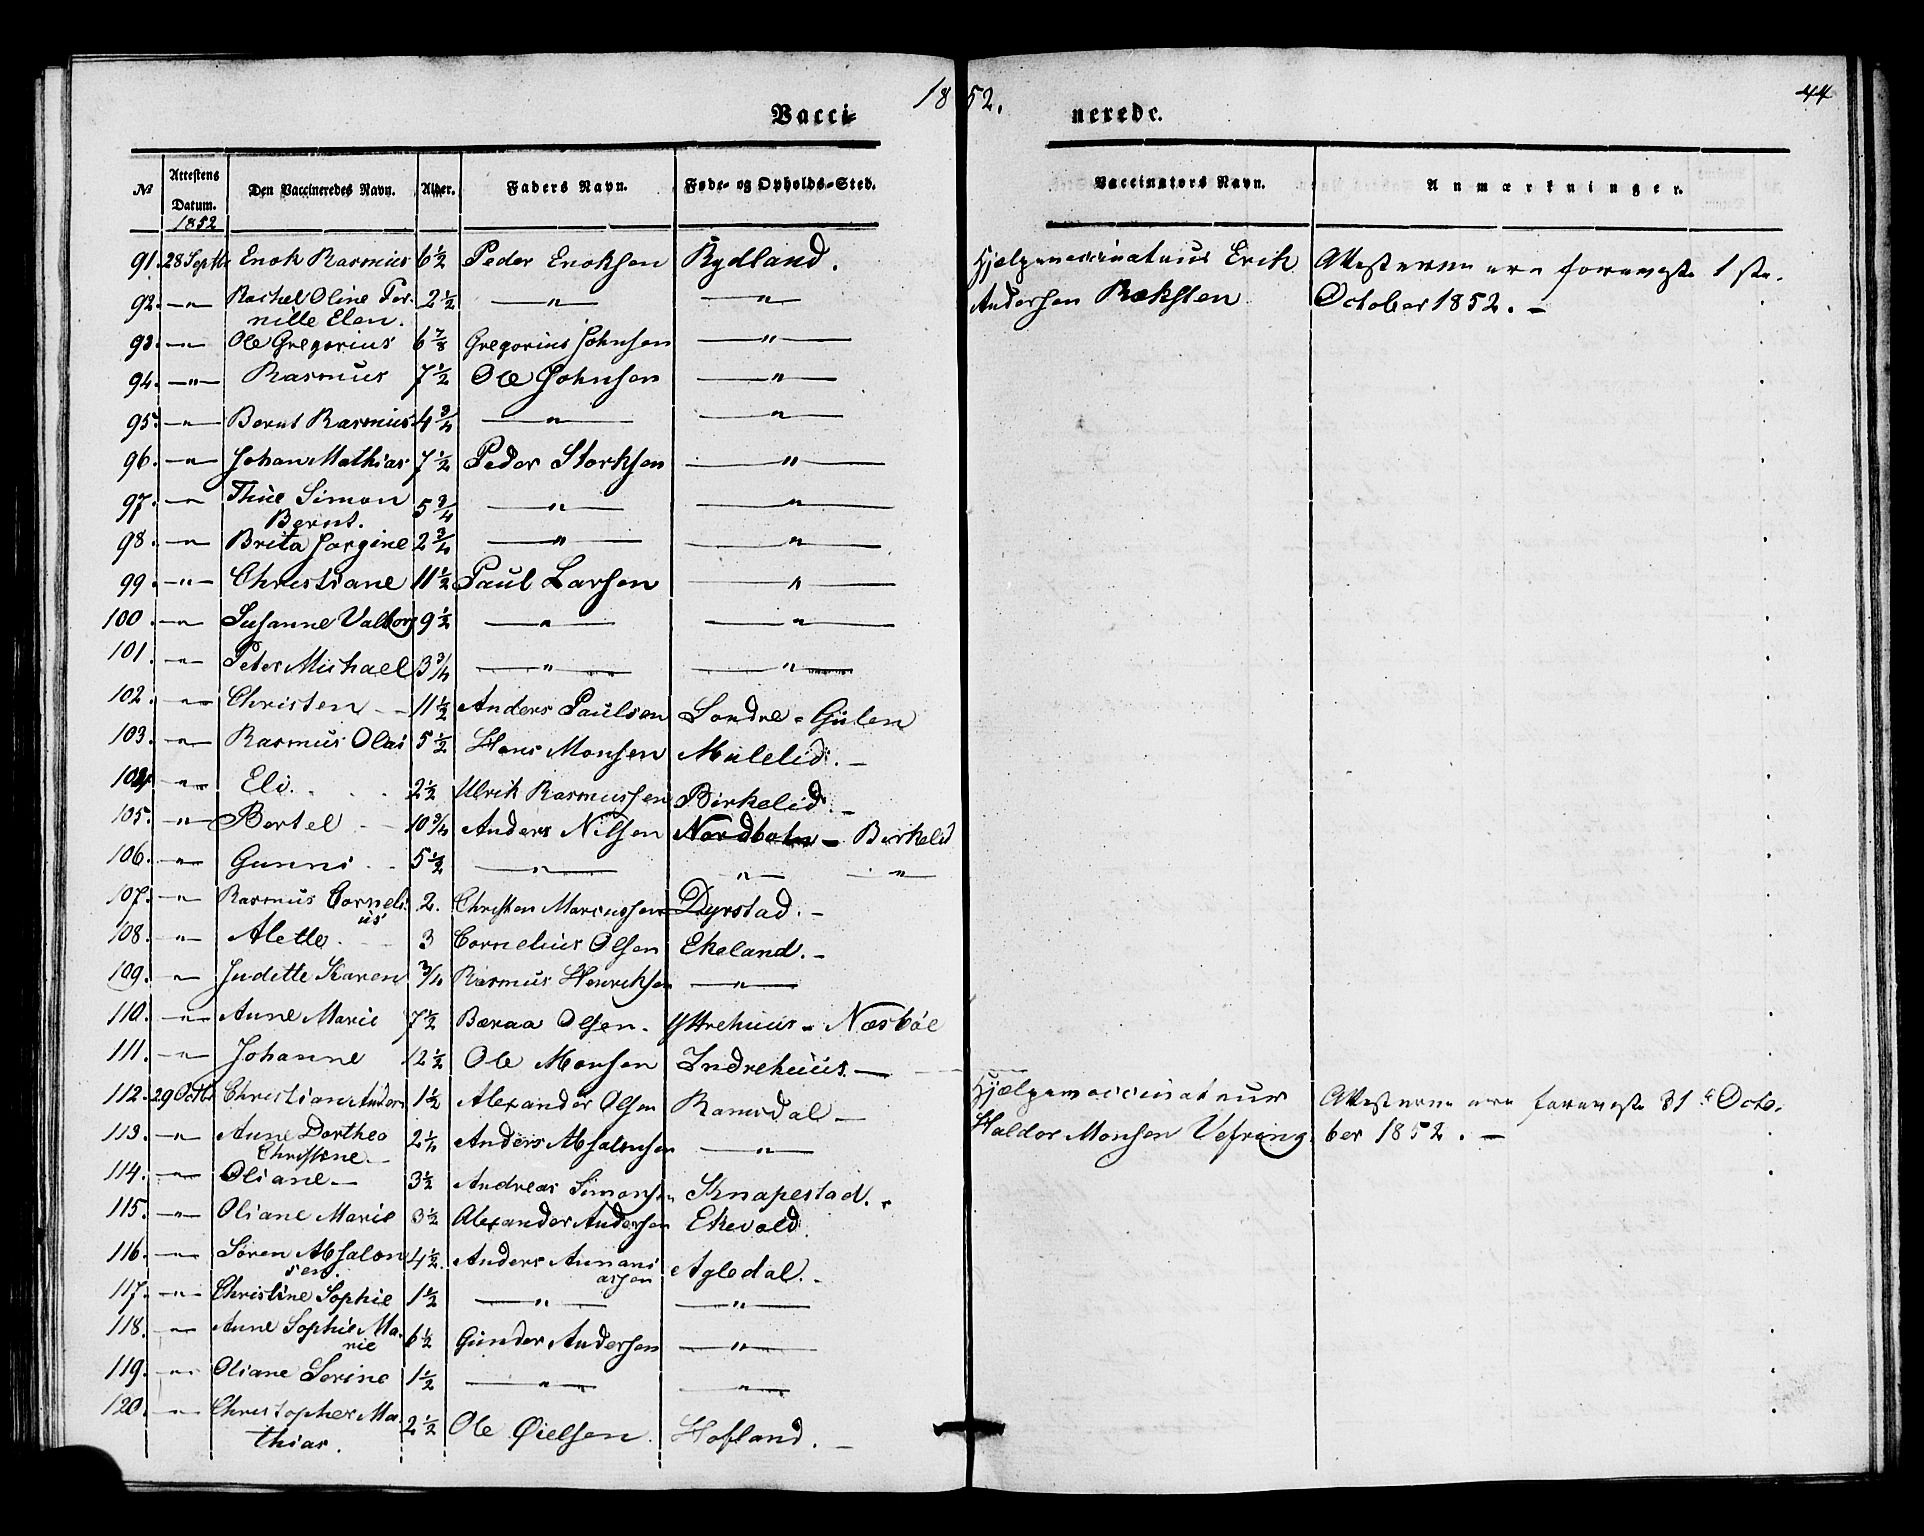 1852.
44
Vacci-
nerede.
No Attestens Datum. Den Vaccineredes Navn. Alder. Faders Navn. Føde- og Opholds-Sted. Vaccinators Navn. Anmærkninger.
1852
91. 28 Septbr Enok Rasmus 6½ Peder Enoksen Rydland. Hjelpevaccinateur Erik Attesterne ere foreviste 1ste
92. —"— Rachel Oline Per- 2½ —"— —"— Andersen Ræksten October 1852. —
nille Elen.
93. —"— Ole Gregorius 6⅞ Gregorius Johnsen —"—
94. —"— Rasmus 7½ Ole Johnsen —"—
95. —"— Bernt Rasmus 4¾ —"— —"—
96. —"— Johan Mathias 7½ Peder Storksen —"—
97. —"— Thue Simon 5¾ —"— —"—
Bernt.
98. —"— Brita Jorgine 2¾ —"— —"—
99. —"— Christiane 11½ Paul Larsen —"—
100. —"— Susanne Valborg 9½ —"— —"—
101. —"— Peter Michael 3¾ —"— —"—
102. —"— Christen 11½ Anders Paulsen Sondre-Gulen
103. —"— Rasmus Olai 5½ Hans Monsen Mulelid. —
104. —"— Eli 2½ Ulrik Rasmussen Birkelid. —
105. —"— Bertel 10¾ Anders Nilsen Nordbotn — Birkelid
106. —"— Gunni 5½ —"— —"— —"—
107. —"— Rasmus Corneli 2. Christen Marcussen Dyrstad. —
us
108. —"— Alette 3 Cornelius Olsen Ekeland. —
109. —"— Judette Karen ¾ Rasmus Henriksen —"—
110. —"— Anne Marie 7½ Baraa Olsen. Yttrehuus — Næsbøe
111. —"— Johanne 12½ Ole Monsen Indrehuus. —
112. 29 Octbr Christian Anders 1½ Alexander Olsen Ramsdal — Hjelpevaccinateur Attesterne ere foreviste 31te Octo-
113. —"— Anne Dorthea 2¼ Anders Absalonsen —"— Haldor Monsen Vefring. ber 1852. —
Christine. —
114. —"— Oliane — 3½ Andreas Simonsen Knapestad. -
115. —"— Oliane Marie 3½ Alexander Andersen Ekevold.
116. —"— Søren Absalon 4½. Anders Annani Agledal. -
sen. assen
117. —"— Christine Sophie 1½ —"— —"—
118. —"— Anne Sophie Ma- 6½ Gunder Andersen —"—
rie
119. —"— Oliane Serine 1½ —"— —"—
120. —"— Christopher Ma- 2½ Ole Øielsen. Hofland. —
thias.